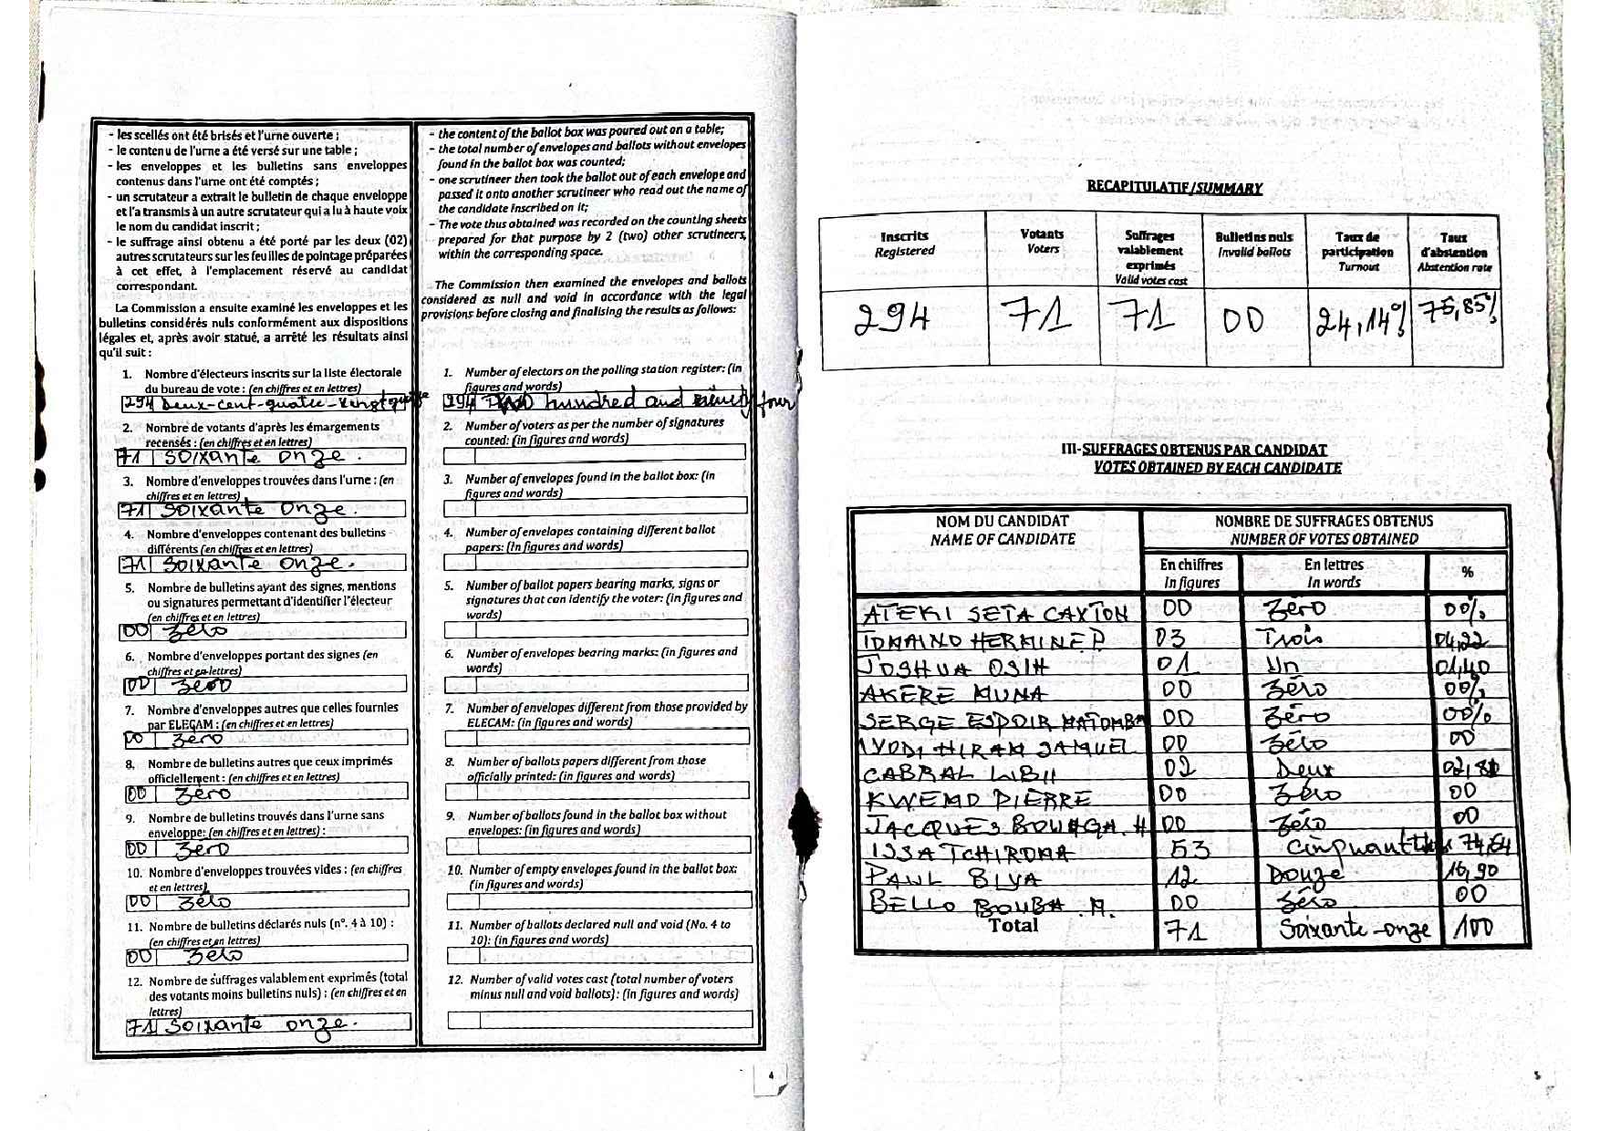 - les scellés ont été brisés et l'urne ouverte ;
- le contenu de l'urne a été versé sur une table ;
- les enveloppes et les bulletins sans enveloppes
contenus dans l'urne ont été comptés ;
- un scrutateur a extrait le bulletin de chaque enveloppe
et l'a transmis à un autre scrutateur qui a lu à haute voix
le nom du candidat inscrit ;
- le suffrage ainsi obtenu a été porté par les deux (02)
autres scrutateurs sur les feuilles de pointage préparées
à cet effet, à l'emplacement réservé au candidat
correspondant.
La Commission a ensuite examiné les enveloppes et les
bulletins considérés nuls conformément aux dispositions
légales et, après avoir statué, a arrêté les résultats ainsi
qu'il suit :
1. Nombre d'électeurs inscrits sur la liste électorale
du bureau de vote : (en chiffres et en lettres)
294 Deux-cent-quatre-vingt
2. Nombre de votants d'après les émargements
recensés : (en chiffres et en lettres)
71 Soixante onze.
3. Nombre d'enveloppes trouvées dans l'urne : (en
chiffres et en lettres)
71 Soixante onze.
4. Nombre d'enveloppes contenant des bulletins
différents (en chiffres et en lettres)
71 Soixante onze.
5. Nombre de bulletins ayant des signes, mentions
ou signatures permettant d'identifier l'électeur
(en chiffres et en lettres)
00 zéro
6. Nombre d'enveloppes portant des signes (en
chiffres et en lettres)
00 zéro
7. Nombre d'enveloppes autres que celles fournies
par ELECAM : (en chiffres et en lettres)
00 zéro
8. Nombre de bulletins autres que ceux imprimés
officiellement : (en chiffres et en lettres)
00 zéro
9. Nombre de bulletins trouvés dans l'urne sans
enveloppe: (en chiffres et en lettres) :
00 zéro
10. Nombre d'enveloppes trouvées vides : (en chiffres
et en lettres)
00 zéro
11. Nombre de bulletins déclarés nuls (n°. 4 à 10) :
(en chiffres et en lettres)
00 zéro
12. Nombre de suffrages valablement exprimés (total
des votants moins bulletins nuls) : (en chiffres et en
lettres)
71 Soixante onze.
- the content of the ballot box was poured out on a table;
- the total number of envelopes and ballots without envelopes
found in the ballot box was counted;
- one scrutineer then took the ballot out of each envelope and
passed it onto another scrutineer who read out the name of
the candidate inscribed on it;
- The vote thus obtained was recorded on the counting sheets
prepared for that purpose by 2 (two) other scrutineers,
within the corresponding space.
The Commission then examined the envelopes and ballots
considered as null and void in accordance with the legal
provisions before closing and finalising the results as follows:
1. Number of electors on the polling station register: (in
figures and words)
294 Two hundred and ninety four
2. Number of voters as per the number of signatures
counted: (in figures and words)
3. Number of envelopes found in the ballot box: (in
figures and words)
4. Number of envelopes containing different ballot
papers: (in figures and words)
5. Number of ballot papers bearing marks, signs or
signatures that can identify the voter: (in figures and
words)
6. Number of envelopes bearing marks: (in figures and
words)
7. Number of envelopes different from those provided by
ELECAM: (in figures and words)
8. Number of ballots papers different from those
officially printed: (in figures and words)
9. Number of ballots found in the ballot box without
envelopes: (in figures and words)
10. Number of empty envelopes found in the ballot box:
(in figures and words)
11. Number of ballots declared null and void (No. 4 to
10): (in figures and words)
12. Number of valid votes cast (total number of voters
minus null and void ballots): (in figures and words)
4
RECAPITULATIF/SUMMARY
Inscrits Registered | Votants Voters | Suffrages valablement exprimés Valid votes cast | Bulletins nuls Invalid ballots | Taux de participation Turnout | Taux d'abstention Abstention rate
294 | 71 | 71 | 00 | 24,14% | 75,85%
III-SUFFRAGES OBTENUS PAR CANDIDAT
VOTES OBTAINED BY EACH CANDIDATE
NOM DU CANDIDAT NOMBRE DE SUFFRAGES OBTENUS
NAME OF CANDIDATE NUMBER OF VOTES OBTAINED
En chiffres En lettres %
In figures In words
ATEKI SETA CAXTON 00 Zéro 00%
TOMAINO HERMINE P 03 Trois 04,22
JOSHUA OSIH 01 Un 01,40
AKERE MUNA 00 Zéro 00%
SERGE ESPOIR MATOMBA 00 Zéro 00%
IYODI HIRAM SAMUEL 00 Zéro 00
CABRAL LIBII 02 Deux 02,81
KWEMO PIERRE 00 Zéro 00
JACQUES BOUHGA. H 00 Zéro 00
ISSA TCHIROMA 53 74,64
PAUL BIYA 12 Douze 16,90
BELLO BOUBA . M. 00 Zéro 00
Total 71 Soixante-onze 100
5